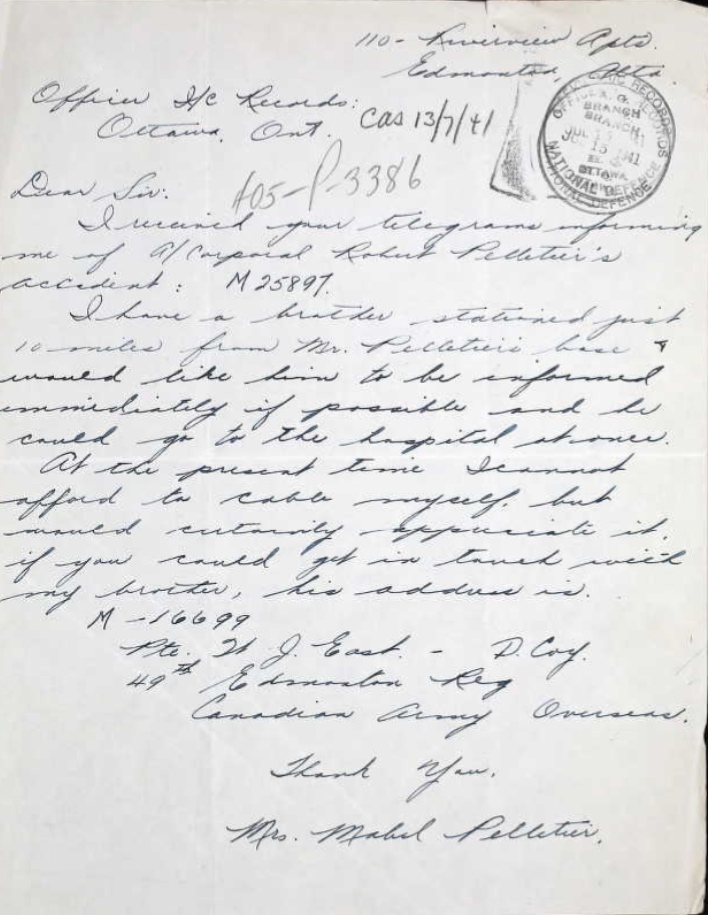 110 - Riverview Apts.
Edmonton, Alta.
Officer I/C Records:
Ottawa, Ont.
CAS 13/7/41
405-P-3386
OFFICE I/C RECORDS
BRANCH
BRANCH
JUL 15 1941
OTTAWA
NATIONAL DEFENCE
Dear Sir:
I received your telegrams informing
me of A/Corporal Robert Pelletier's
accident: M 25897.
I have a brother stationed just
10 miles from Mr. Pelletier's base &
would like him to be informed
immediately if possible and he
could go to the hospital at once.
At the present time I cannot
afford to cable myself, but
would certainly appreciate it,
if you could get in touch with
my brother, his address is.
M - 16699
Pte. W. J. East. - D. Coy.
49th Edmonton Reg
Canadian Army Overseas.
Thank You.
Mrs. Mabel Pelletier.